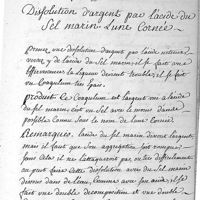 Dissolution d'argent par l'acide du
Sel marin Lune Cornée
prenez une dissolution d'argent par l'acide nitreux
versez y de l'acide du Sel marin il se fait une
Effervescence la Liqueur devient trouble il se fait
un Coagulum très épais
produit le Coagulum est l'argent uni à l'acide
du Sel marin c'est un Sel avec le moins d'acide
possible connu sous le nom de lune Cornée
Remarques, l'acide du Sel marin dissout l'argent
mais il faut que son aggrégation soit rompue
sans cela il ne l'attaquera pas, ou très difficilement
on peut faire cette dissolution avec du Sel marin
dissous dans de l'eau, comme avec son acide, il se
fait une double decomposition et une double